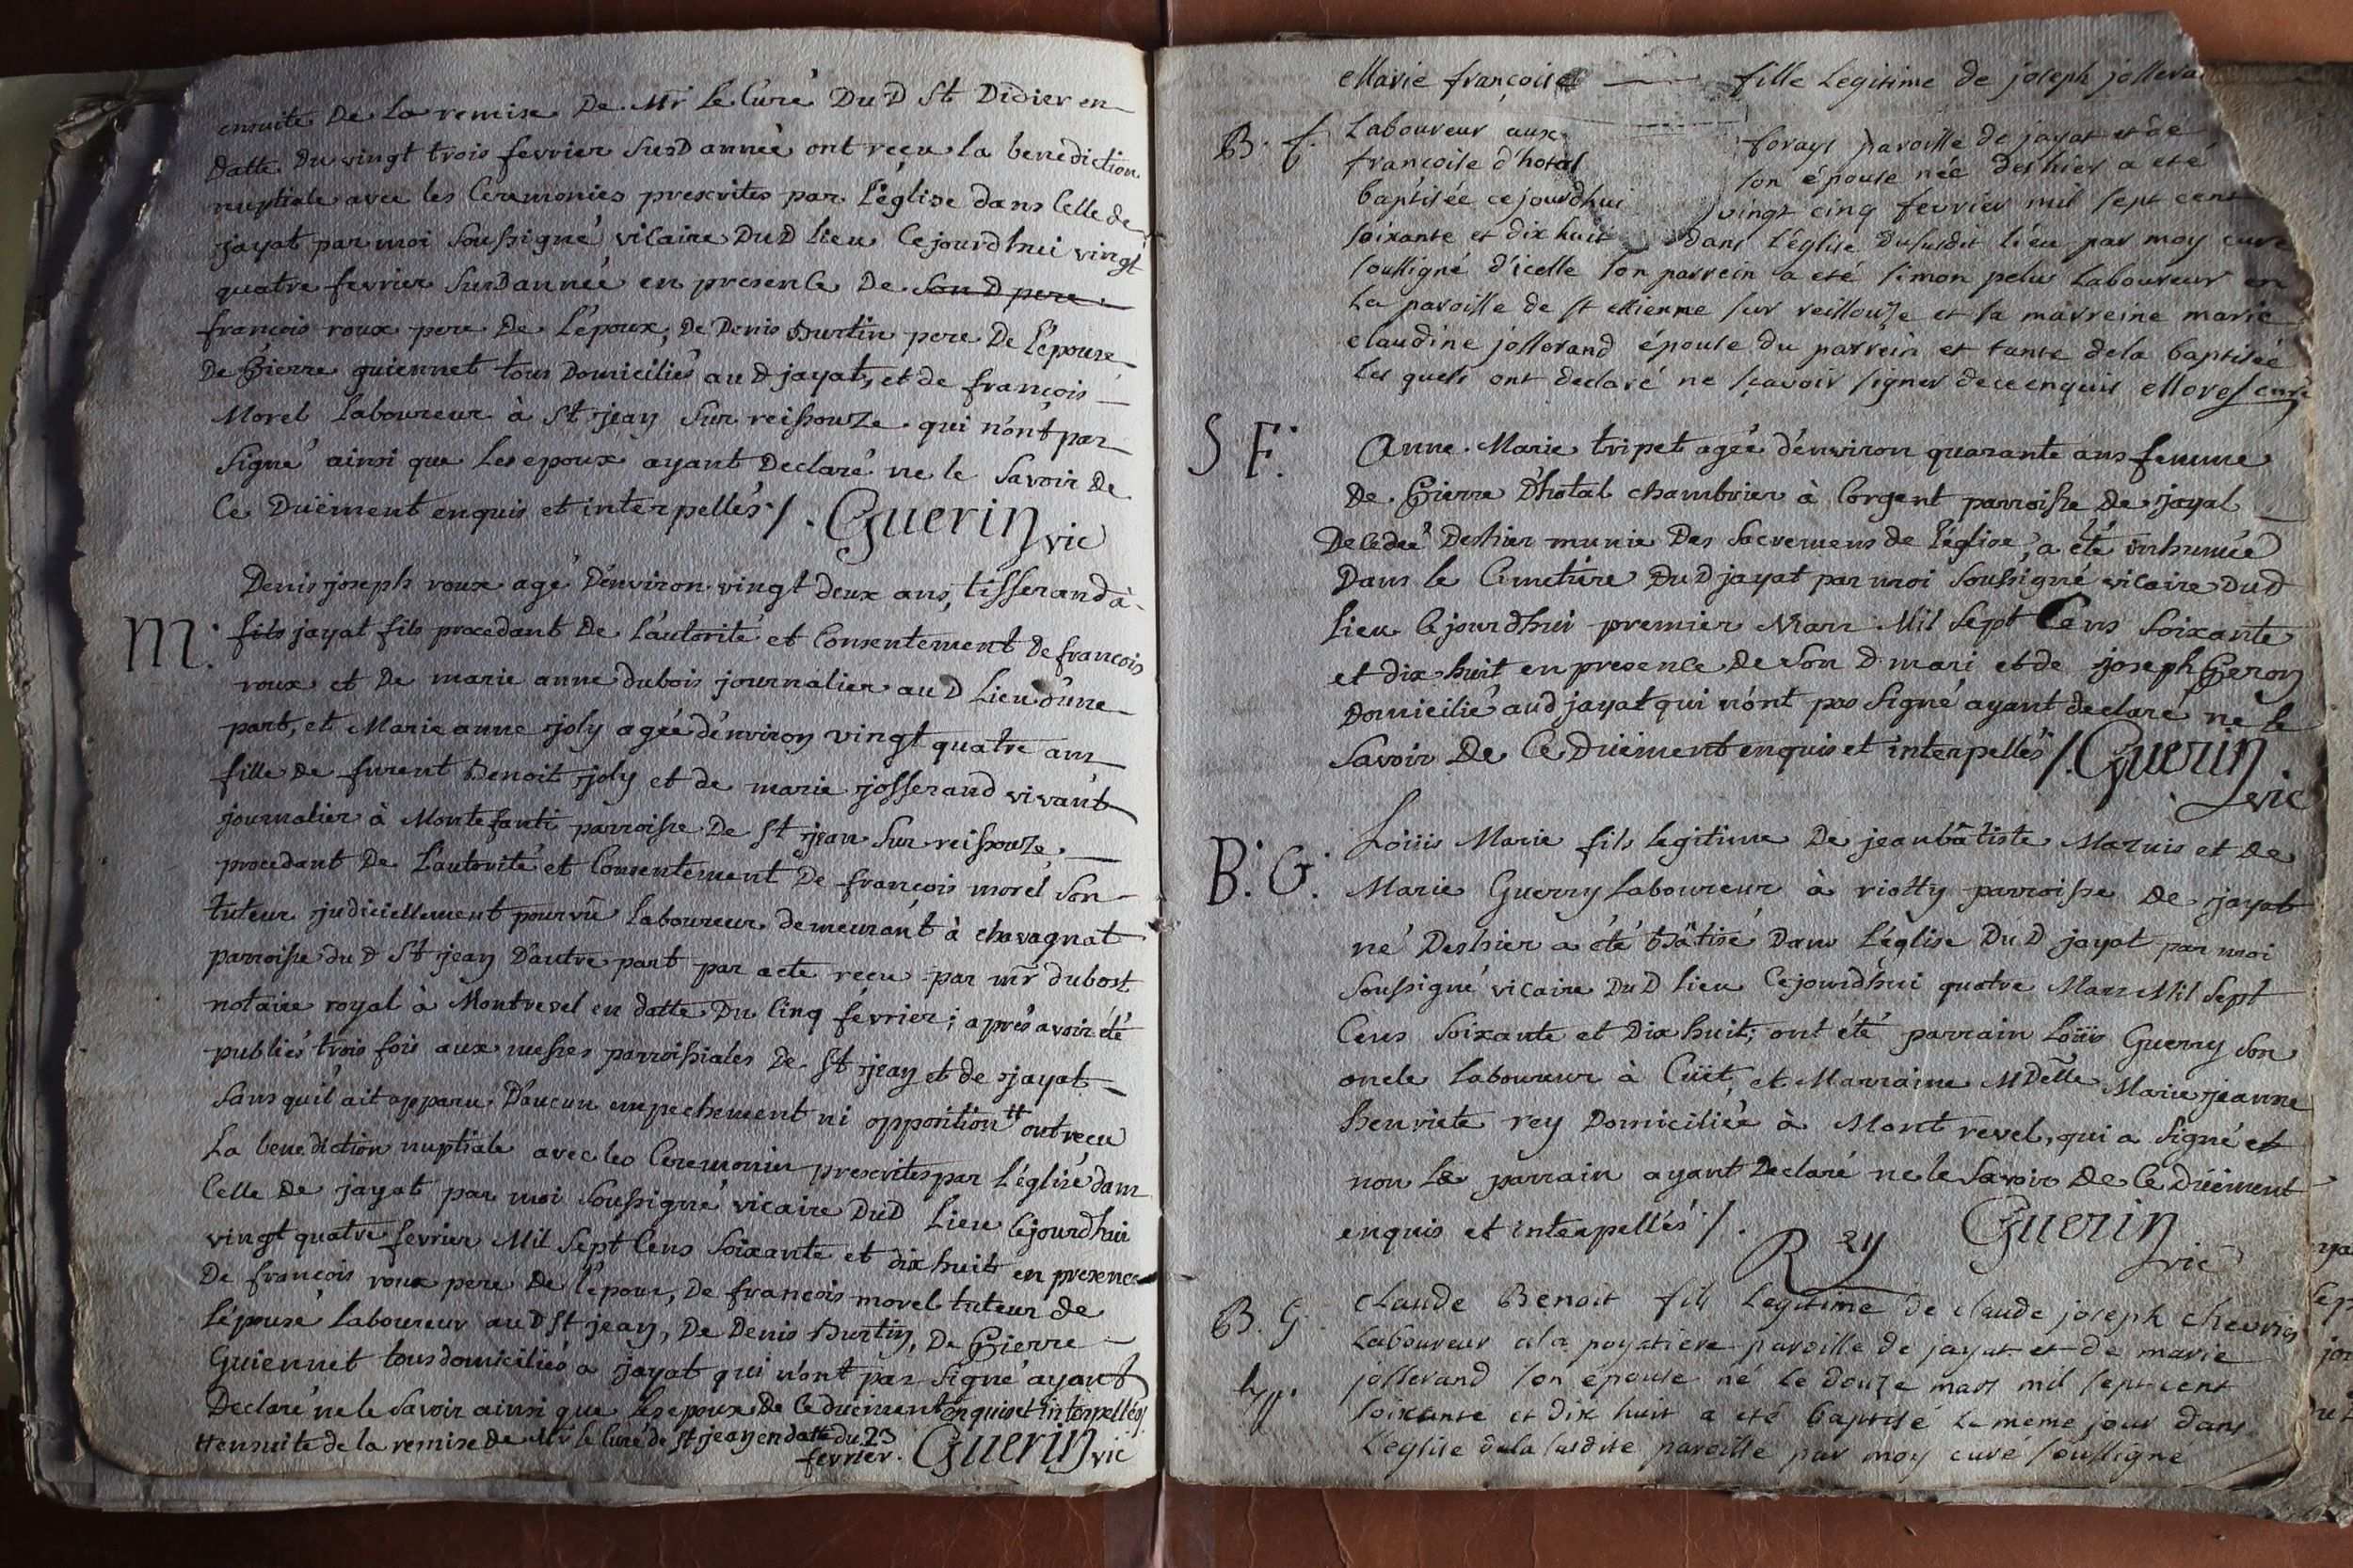 ensuite De la remise De Mr le Curé DuD St Didier en
datte Du vingt trois fevrier SusD année ont reçu la benediction
nuptiale avec les Ceremonies prescrites par l'église dans Celle de
jayat par moi Soussigné vicaire DuD lieu Cejourdhui vingt
quatre fevrier SusD année en presence De Son D pere
françois roux pere De l'époux, De Denis Burtin pere De l'épouse
De Pierre guiennet tous Domiciliés auD jayat, et de françois
Morel laboureur à St jean Sur reissouze qui n'ont pas
Signé ainsi que les epoux ayant Declaré ne le Savoir De
Ce Duëment enquis et interpellés /. Guerin vic
Denis joseph roux agé D'environ vingt deux ans, tisserand à
M: fils jayat fils procedant De l'autorité et Consentement De françois
roux et De marie anne dubois journalier auD Lieu d'une
part, et Marie anne joly agée d'environ vingt quatre ans
fille De furent Benoit joly et de marie josserand vivant
journalier à Montefanti parroisse De St jean Sur reissouze
procedant De l'autorité et Consentement De françois morel Son
tuteur judiciellement pourvû laboureur demeurant à chavagnat
parroisse du D St jean D'autre part par acte reçu par mr dubost
notaire royal à Montrevel en datte Du Cinq février; aprés avoir été
publiés trois fois aux messes parroissiales De St jean et de jayat
Sans qu'il ait apparu D'aucun empechement ni opposition tt ont reçu
La benediction nuptiale avec les Ceremonies prescrites par l'église dans
Celle De jayat par moi Soussigné vicaire DuD Lieu Cejourdhui
vingt quatre fevrier Mil Sept Cens Soixante et dix huit en presence
De françois roux pere De l'epoux, De françois morel tuteur de
l'épouse laboureur auD St jean, De Denis Burtin, De Pierre
Guiennet tous domiciliés a jayat qui n'ont pas Signé ayant
Declaré ne le Savoir ainsi que les epoux De Ce duëment enquis et interpellés/
tt ensuite de la remise De Mr le Curé de St jean en datte du 23
fevrier. Guerin vic
Marie françoise fille Legitime de joseph jollera
B. f. Laboureur aux forays paroisse de jayat et de
françoise d'hotal son épouse née deshier a eté
baptisée cejourdhui vingt cinq fevrier mil sept cent
soixante et dix huit dans l'église dususdit lieu par moy curé
soussigné d'icelle son parrein a eté simon pelus Laboureur en
la paroisse de st etienne sur reissouze et sa marreine marie
claudine jollerand épouse du parrein et tante dela baptisée
les quels ont declaré ne sçavoir signer dece enquis Morel curé
S F: Anne Marie tripet agée d'environ quarante ans femme
De Pierre D'hotal chambrier à Corgent parroisse De jayat
Decedée Deshier munie Des Sacremens de l'église, a été inhumée
Dans le Cimetiere DuD jayat par moi Soussigné vicaire DuD
lieu Cejourdhui premier Mars Mil Sept Cens Soixante
et dix huit en presence De Son D mari et de joseph Peron
Domicilié auD jayat qui n'ont pas Signé ayant declaré ne le
Savoir De Ce Duëment enquis et interpellés /. Guerin
vic
Loüis Marie fils legitime De jeanbâtiste Maruis et De
B: G: Marie Guerry laboureur à riotty parroisse De jayat
né Deshier a été bâtisé Dans l'église DuD jayat par moi
Soussigné vicaire DuD lieu Cejourdhui quatre Mars Mil Sept
Cens Soixante et Dix huit; ont été parrain Loüis Guerry Son
oncle laboureur à Cüet, et Marraine MDelle Marie jeanne
henriete rey Domiciliée à Mont revel, qui a Signé et
non le parrain ayant Declaré ne le Savoir De Ce düëment
enquis et interpellés /. Rey Guerin
vic
B. G. Claude Benoit fils Legitime de claude joseph chevrier
Laboureur ala poyatiere paroisse de jayat et de marie
jollerand son épouse né le douze mars mil sept cent
soixante et dix huit a eté baptisé le meme jour dans
L'eglise dela susdite paroisse par moy curé soussigné